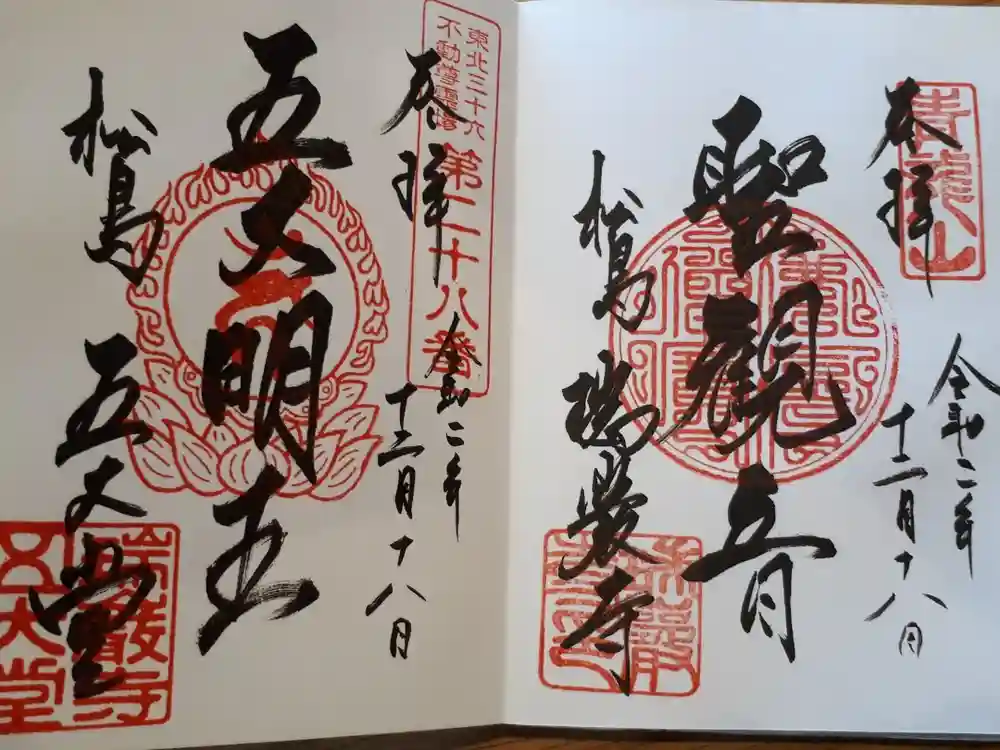 青龍山
奉拝
令和二年
十二月十八日
聖観音
松島
瑞巌寺
東北三十六
不動尊霊場
第二十八番
奉拝
令和二年
十二月十八日
五大明王
松島
五大堂
瑞巌寺
五大堂